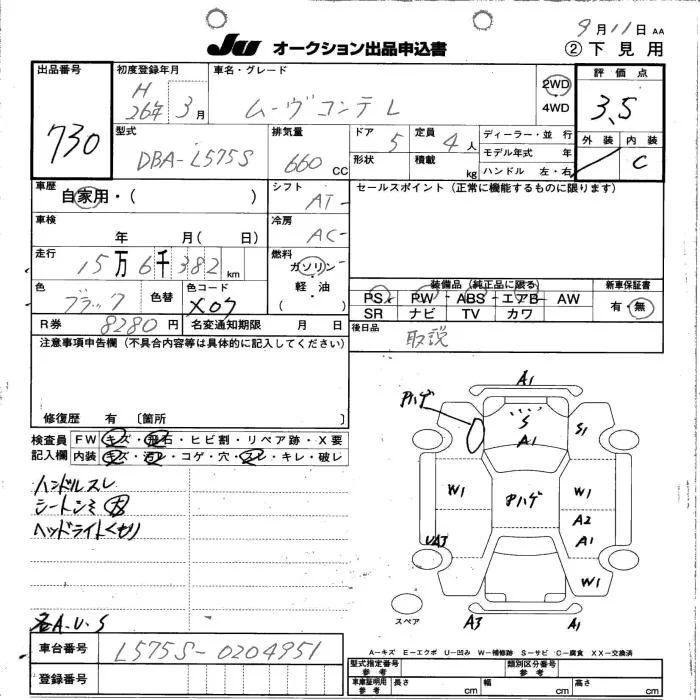 9月11日 AA
JU オークション出品申込書
② 下見用
出品番号
730
初度登録年月
H
26年 3月
車名・グレード
ムーヴコンテ L
2WD
4WD
評価点
3.5
外装 内装
C
型式
DBA-L575S
排気量
660 CC
ドア 5
定員 4人
形状
積載 kg
ディーラー・並行
モデル年式 年
ハンドル 左・右
車歴
自家用・( )
シフト
AT-
セールスポイント(正常に機能するものに限ります)
車検
年 月( 日)
冷房
AC-
走行
15万6千382km
燃料
ガソリン・
軽油
( )
色
ブラック
色替
色コード
X07
装備品(純正品に限る)
PS PW ABS エアB AW
SR ナビ TV カワ
新車保証書
有・無
R券 8280円
名変通知期限 月 日
後日品
取説
注意事項申告欄(不具合内容等は具体的に記入してください)
修復歴 有 〔箇所 〕
検査員
記入欄
FW キズ・飛石・ヒビ割・リペア跡・X要
内装 キズ・汚レ・コゲ・穴・スレ・キレ・破レ
ハンドルスレ
シートシミ大
ヘッドライトくもり
各A.U.S
車台番号 L575S-0204951
登録番号
A1
Pハゲ
S
A1
S1
W1
Pハゲ
W1
A2
A1
UA3
W1
スペア
A3
A1
A-キズ E-エクボ U-凹み W-補修跡 S-サビ C-腐食 XX-交換済
型式指定番号
参考
類別区分番号
参考
車庫証明用
参考
長さ cm
幅 cm
高さ cm